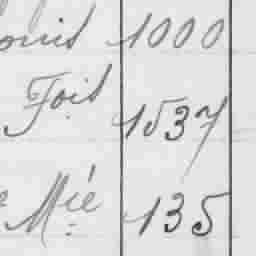 ouis 1000
Foit 1537
Mié 135